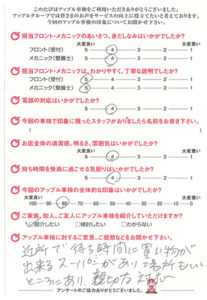 このたびはアップル車検をご利用いただきありがとうございました。
アップルグループではお客さまの声をサービスの向上に役立てたいと考えております。
今回のアップル車検の印象についてお聞かせ下さい。
担当フロント・メカニックのあいさつ、身だしなみはいかがでしたか?
大変良い 大変悪い
フロント(受付) 5 4 3 2 1
メカニック(整備士) 5 4 3 2 1
担当フロント・メカニックは、わかりやすく、丁寧な説明でしたか?
大変良い 大変悪い
フロント(受付) 5 4 3 2 1
メカニック(整備士) 5 4 3 2 1
電話の対応はいかがでしたか?
5 4 3 2 1
今回の車検で印象に残ったスタッフがおりましたら名前をお書き下さい。
( )
お店全体の清潔感、明るさ、雰囲気はいかがでしたか?
大変良い 大変悪い
5 4 3 2 1
待ち時間を快適に過ごせる気配りはいかがでしたか?
5 4 3 2 1
今回のアップル車検の全体的な印象はいかがでしたか?
大変良い 大変悪い
100 90 80 70 60 50 40 30 20 10 0
ご家族、知人、ご友人にアップル車検を紹介していただけますか?
紹介したい 検討したい わからない
アップル車検に対するご意見、ご感想などをお聞かせ下さい。
近所で待ち時間に買い物が
出来るスーパーがあり場所もいい
ところにあり、親切な対応
アンケートのご協力ありがとうございました。